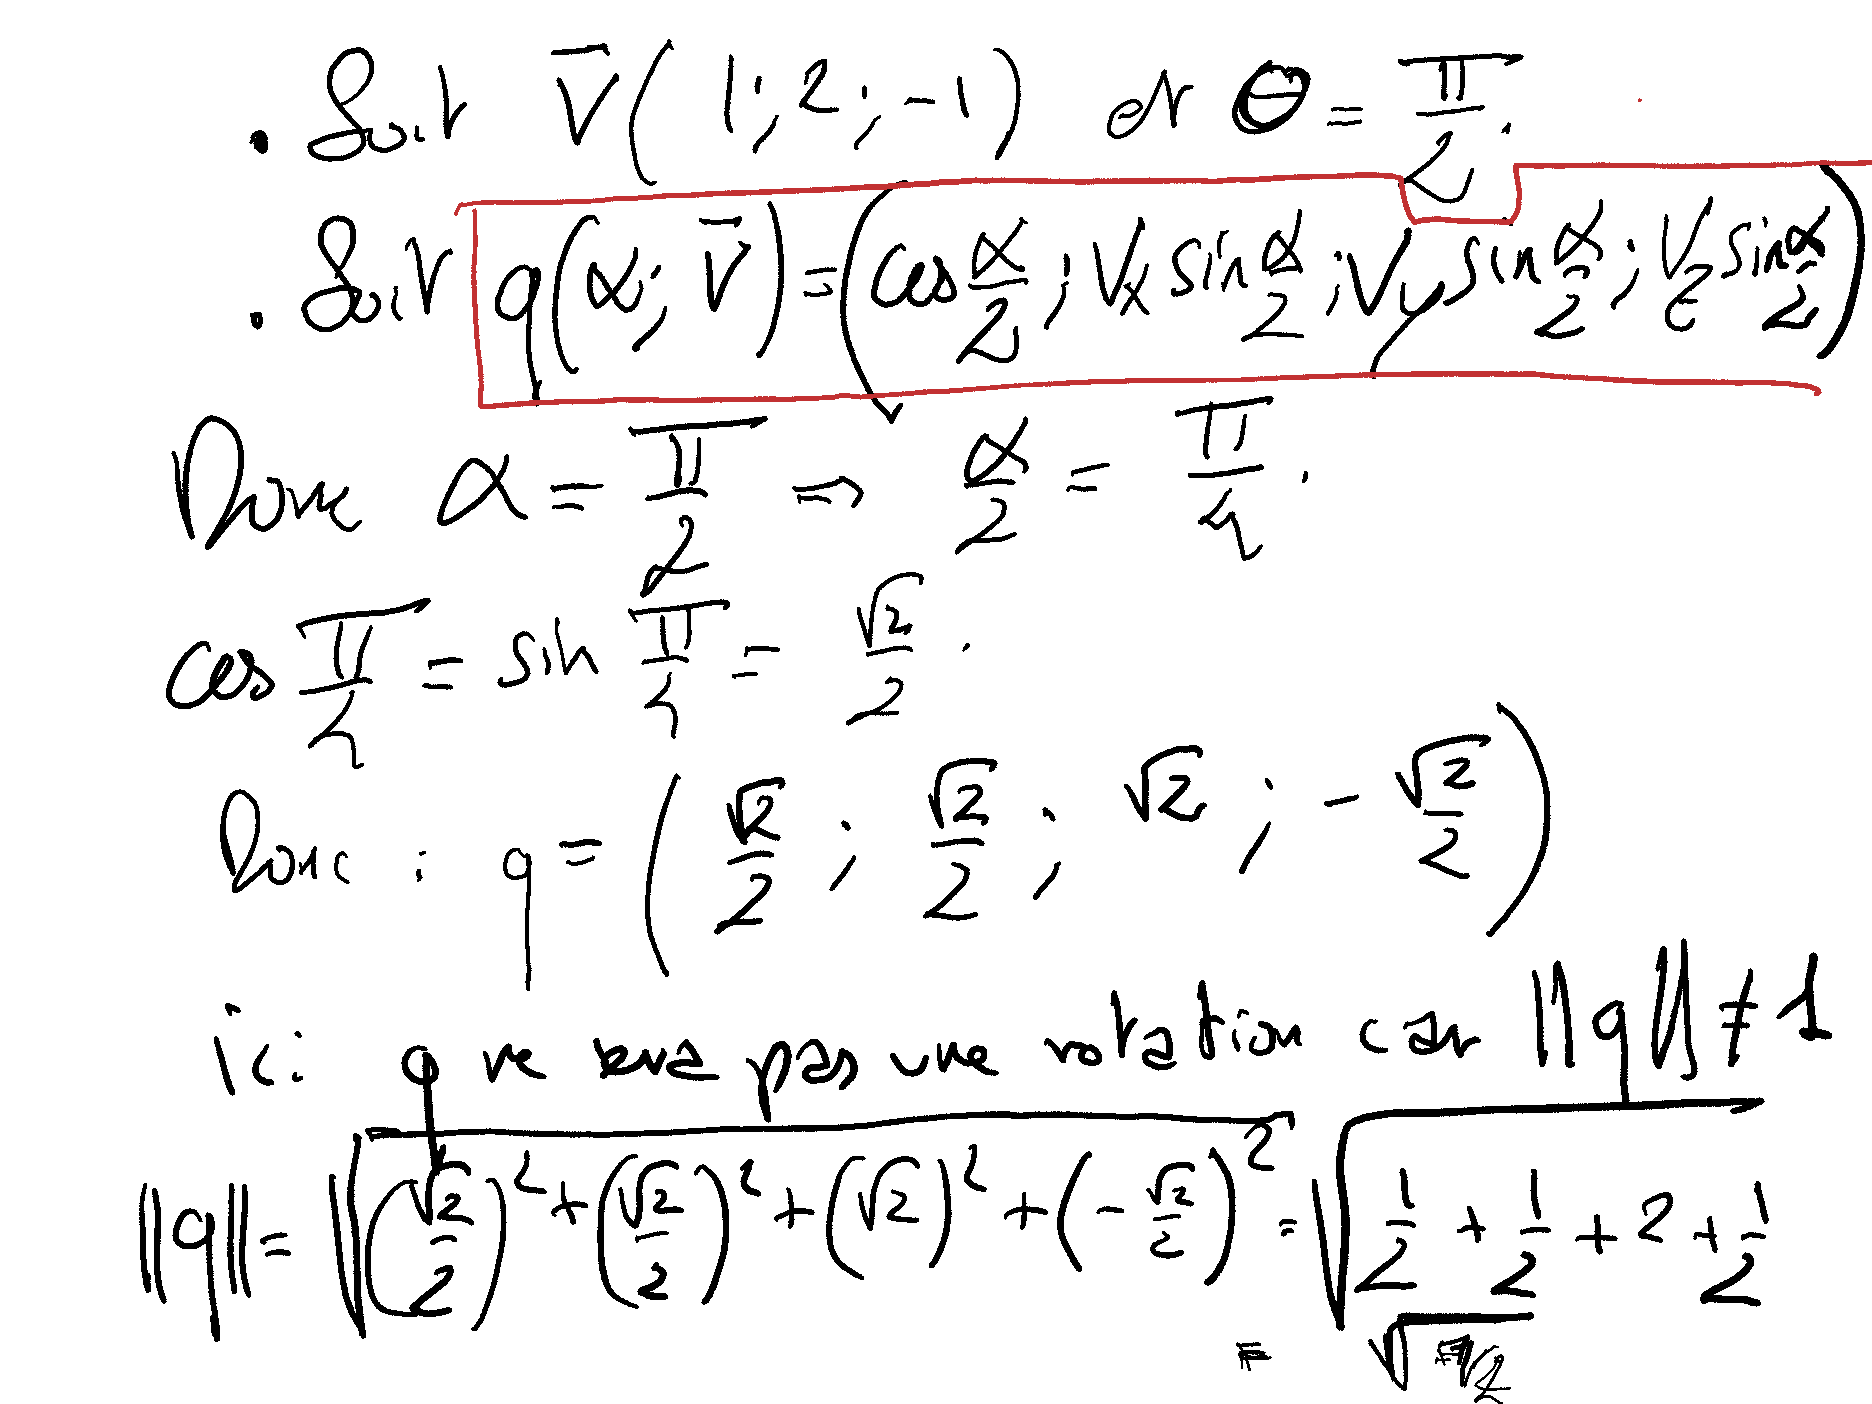 . Soit V̅ ( 1 ; 2 ; -1 ) et θ = π/2 .
. Soit q(α ; V̅) = (cos α/2 ; Vx sin α/2 ; Vy sin α/2 ; Vz sin α/2)
Donc α = π/2 => α/2 = π/4 .
cos π/4 = sin π/4 = √2/2 .
Donc : q = ( √2/2 ; √2/2 ; √2 ; - √2/2 )
ici q ne pas une rotation car ||q|| ≠ 1
||q|| = √( (√2/2)² + (√2/2)² + (√2)² + (- √2/2)² ) = √( 1/2 + 1/2 + 2 + 1/2 )